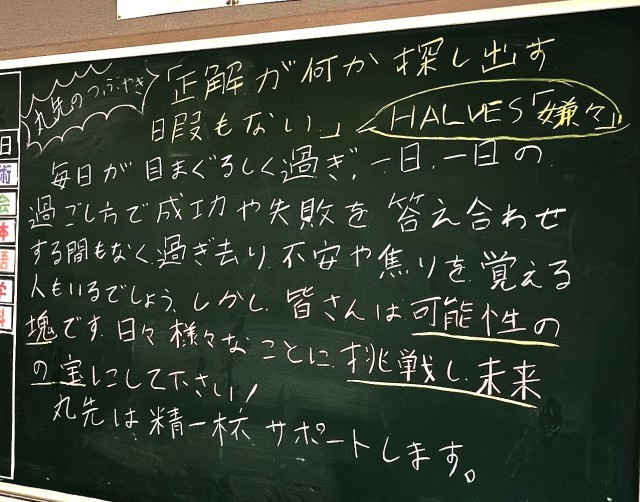 丸先のつぶやき
「正解が何か探し出す
暇もない。」
HALVES「嫌々」
毎日が目まぐるしく過ぎ、一日、一日の
過ごし方で成功や失敗を答え合わせ
する間もなく、過ぎ去り、不安や焦りを覚える
人もいるでしょう。しかし、皆さんは可能性の
塊です。日々様々なことに、挑戦し、未来
の宝にして下さい！
丸先は、精一杯サポートします。
日
術
会
体
語
学
科